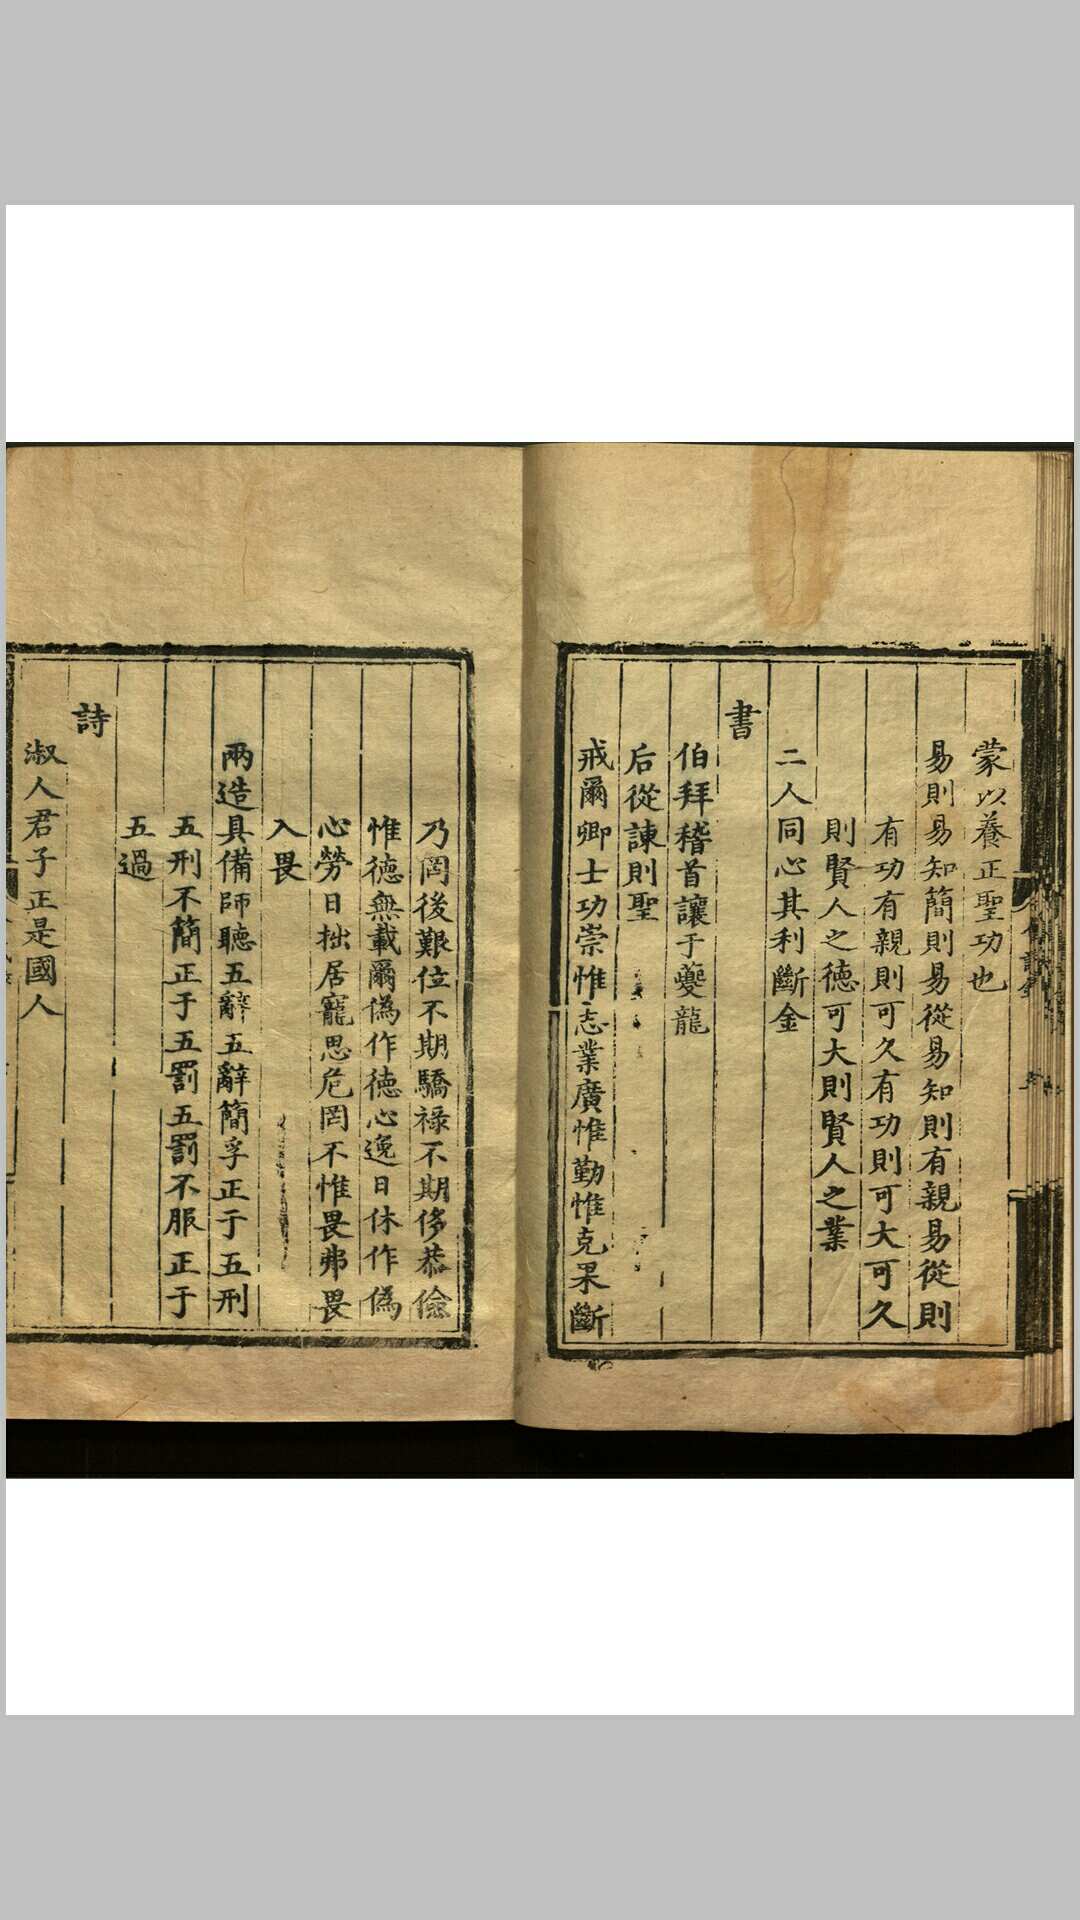 蒙以養正聖功也
易則易知簡則易從易知則有親易從則
有功有親則可久有功則可大可久
則賢人之德可大則賢人之業
二人同心其利斷金
書
伯拜稽首讓于夔龍
后從諫則聖
戒爾卿士功崇惟志業廣惟勤惟克果斷
乃罔後艱位不期驕祿不期侈恭儉
惟德無載爾偽作德心逸日休作偽
心勞日拙居寵思危罔不惟畏弗畏
入畏
兩造具備師聽五辭五辭簡孚正于五刑
五刑不簡正于五罰五罰不服正于
五過
詩
淑人君子正是國人